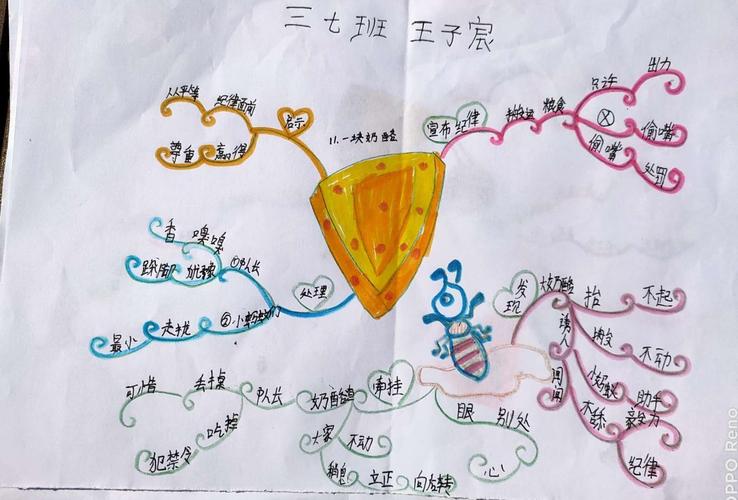 三七班 王子宸
11.一块奶酪
宣布纪律
粮食
只许
出力
偷嘴
偷嘴
处罚
启示
纪律面前
人人平等
赢得
尊重
处理
①队长
嗅嗅
香
跺脚
②小蚂蚁们
最小
发现
大奶酪
抬
不起
诱人
不动
闻闻
小蚂蚁
助手
不舔
毅力
纪律
牵挂
眼
别处
心
奶酪渣
队长
丢掉
可惜
吃掉
犯禁令
大家
不动
稍息
立正
向后转
OPPO Reno